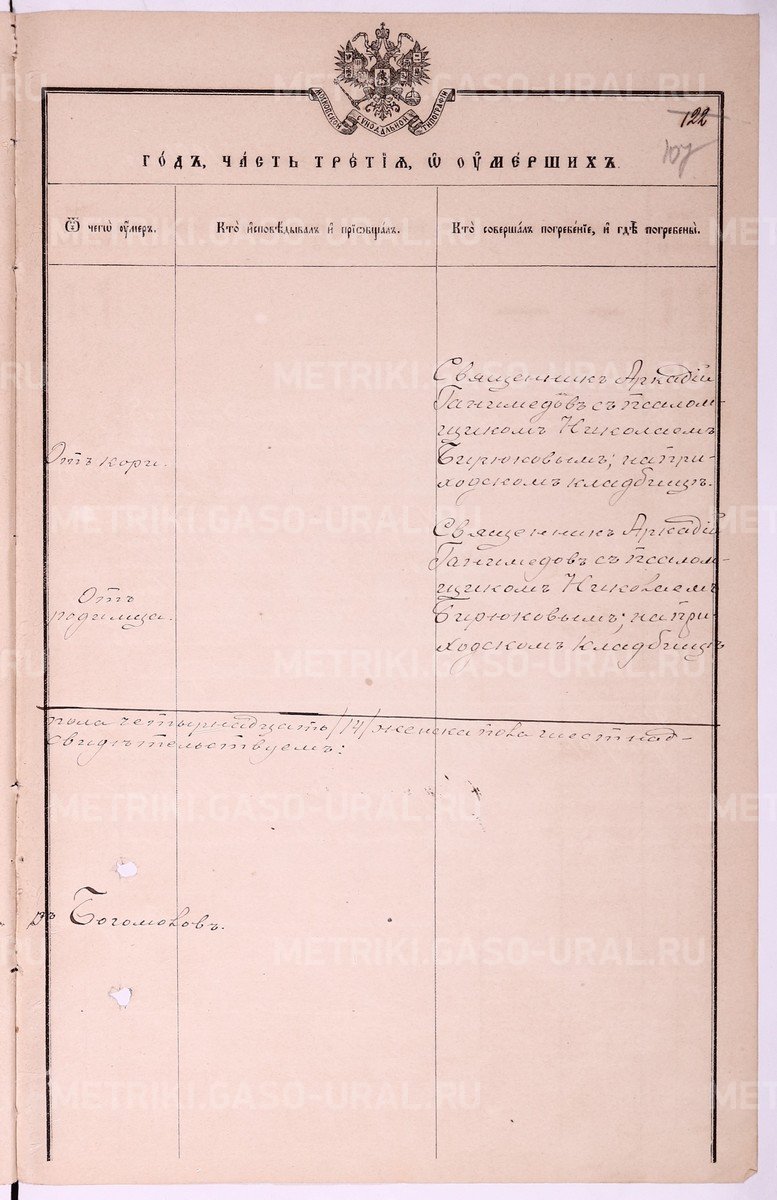 МОСКОВСКОЙ СѴНОДАЛЬНОЙ ТИПОГРАФІИ
122
107
ГО́ДЪ, ЧА́СТЬ ТРЕ́ТІѦ, Ѡ҆ ОУ҆МЕ́РШИХЪ.
Ѿ чегѡ̀ оу҆́меръ.
Кто̀ и҆сповѣ́дывалъ и҆ прїѡбща́лъ.
Кто̀ соверша́лъ погребе́нїе, и҆ гдѣ̀ погребены̀.
Отъ кори.
Священникъ Аркадій
Ганимедовъ съ псалом-
щикомъ Николаемъ
Бирюковымъ; на при-
ходскомъ кладбищѣ.
Отъ
родимца.
Священникъ Аркадій
Ганимедовъ съ псалом-
щикомъ Николаемъ
Бирюковымъ; на при-
ходскомъ кладбищѣ
пола четырнадцать /14/ женска пола шестнад-
свидѣтельствуемъ:
ръ Богомоловъ.
METRIKI.GASO-URAL.RU